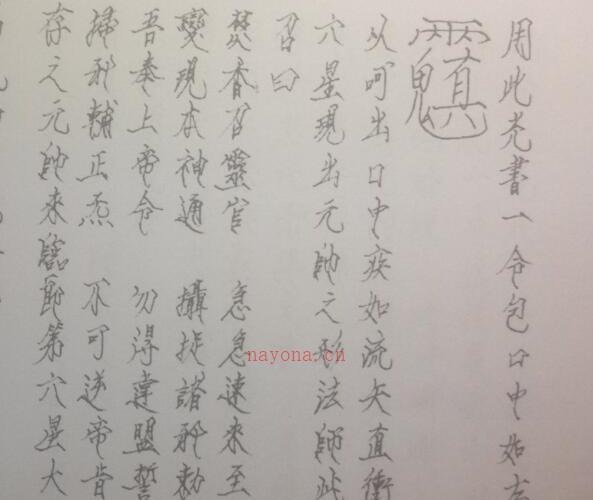 用此炁書一令包口中如
以呵出口中疾如流矢直衝
六星現出元帥之形法師此
召曰
焚香召靈官 急急速來至
變現本神通 攝捉諸邪勅
吾奉上帝令 勿得違盟誓
掃邪輔正炁 不可逆帝旨
存之元帥來臨即第六星大
nayona.cn